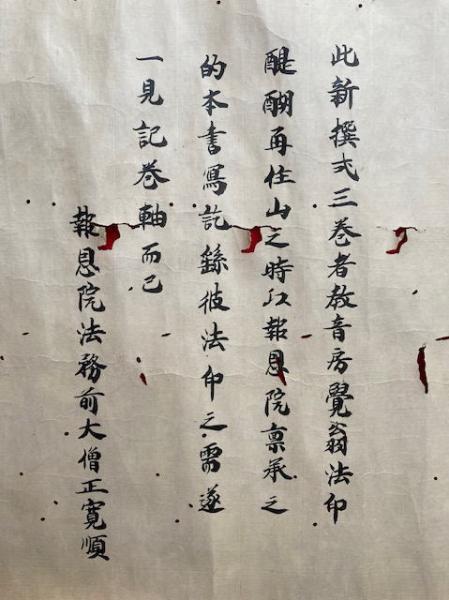 此新撰式三巻者教音房覺翁法印
醍醐再住山之時江報恩院禀承之
的本書寫訖繇彼法印之需遂
一見記巻軸而已
報恩院法務前大僧正寛順